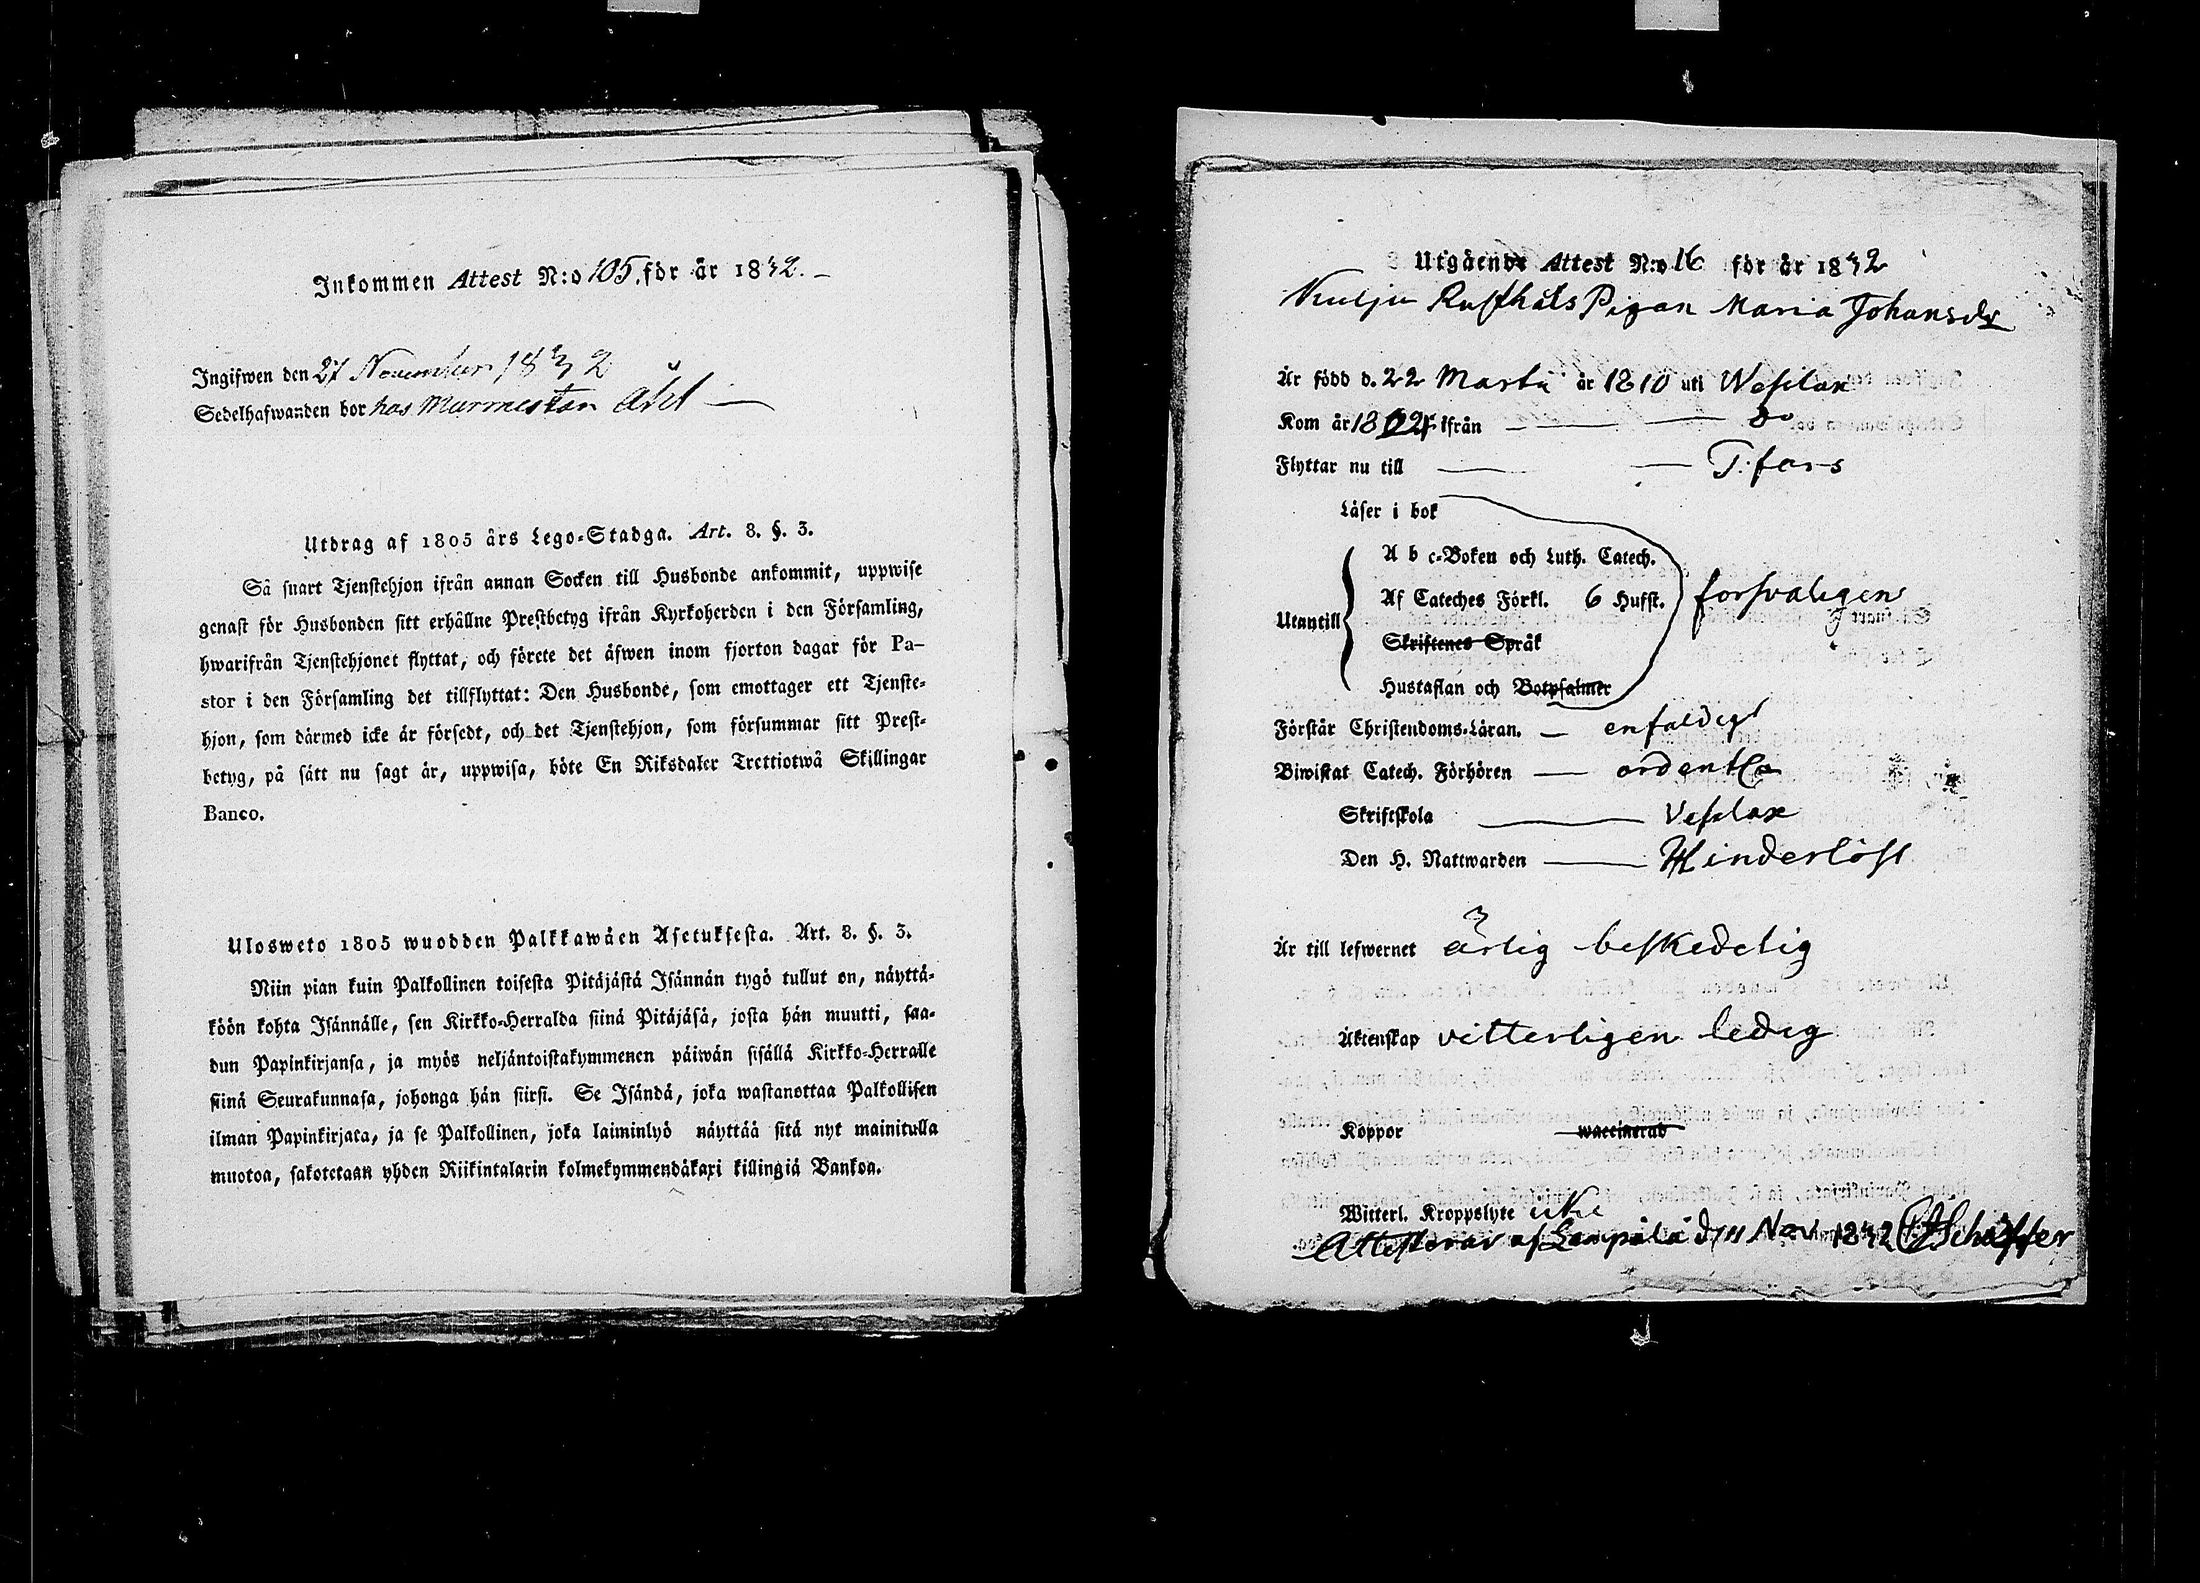 Inkommen Attest N:o 105. för år 1832. –
Ingifwen den 27 November 1832
Sedelhafwanden bor hos Murmestan
Utdrag af 1805 års Lego-Stadga. Art. 8. §. 3.
Så snart Tjenstehjon ifrån annan Socken till Husbonde ankommit, uppwise
genast för Husbonden sitt erhållne Prestbetyg ifrån Kyrkoherden i den Församling,
hwarifrån Tjenstehjonet flyttat, och förete det äfwen inom fjorton dagar för Pa-
stor i den Församling det tillflyttat: Den Husbonde, som emottager ett Tjenste-
hjon, som därmed icke är försedt, och det Tjenstehjon, som försummar sitt Prest-
betyg, på sätt nu sagt är, uppwisa, böte En Riksdaler Trettiotwå Skillingar
Banco.
Ulosweto 1805 wuodden Palkkawäen Asetuksesta. Art. 8. §. 3.
Niin pian kuin Palkollinen toisesta Pitäjästä Isännän tygö tullut on, näyttä-
köön kohta Isännälle, sen Kirkko-Herralda siinä Pitäjäsä, josta hän muutti, saa-
dun Papinkirjansa, ja myös neljäntoistakymmenen päiwän sisällä Kirkko-Herralle
siinä Seurakunnasa, johonga hän siirsi. Se Isändä, joka wastanottaa Palkollisen
ilman Papinkirjata, ja se Palkollinen, joka laiminlyö näyttää sitä nyt mainitulla
muotoa, sakotetaan yhden Riikintalarin kolmekymmendäkaxi killingiä Bankoa.
Utgående Attest N:o 16 för år 1832
Kulju Rusthåls Pigan Maria Johansdr
Är född d. 22 Martii år 1810 uti Wesilax
Kom år ifrån do
Flyttar nu till T:fors
Läser i bok
A b c-Boken och Luth. Catech.
Af Cateches Förkl. 6 Hufst. försvarligen
Utantill
Skriftenes Språk
Hustaflan och Botpsalmer
Förstår Christendoms-Läran. – enfaldigt
Biwistat Catech. Förhören — ordentl.
Skriftskola — Vesilax
Den H. Nattwarden — Hinderlöst
Är till lefwernet ärlig beskedelig
Äktenskap vitterligen ledig
Koppor waccinerad
Witterl. Kroppslyte icke
Attesterar af Lempälä d 11 Nov 1832 Schäffer